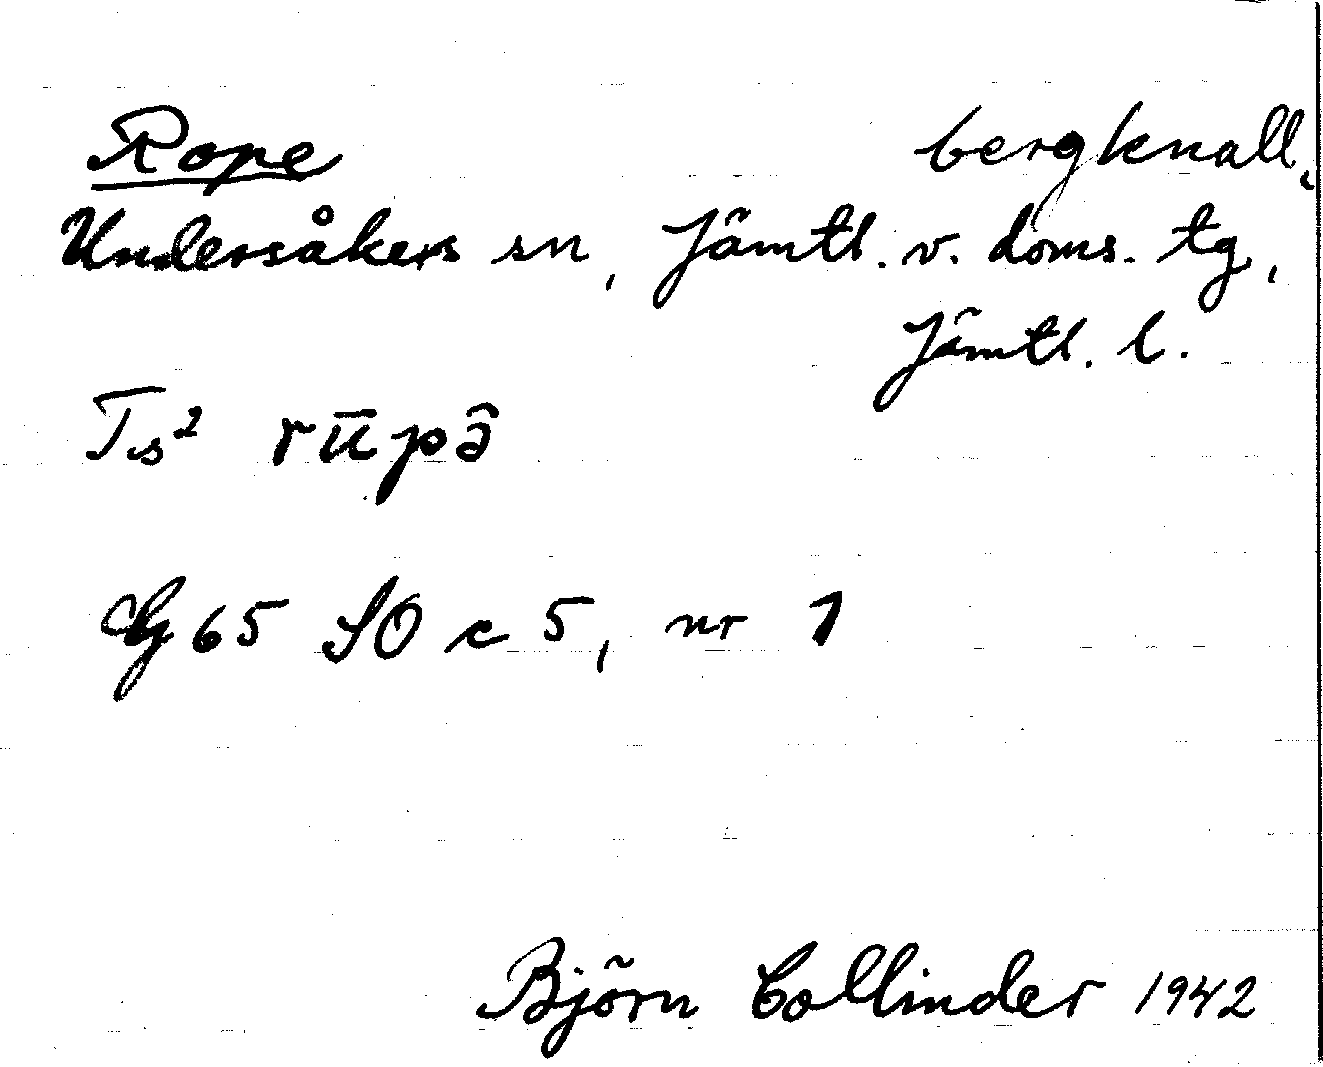 Rope bergknall,
Undersåkers sn, Jämtl. v. doms. tg,
Jämtl. l.
Ts² rūpə̑
G 65 SO c 5, nr 1
Björn Collinder 1942